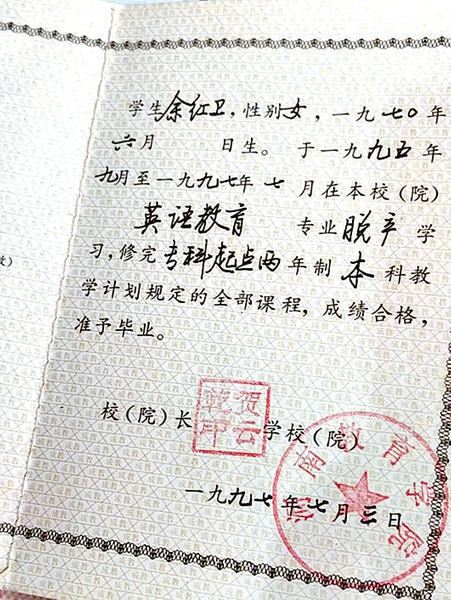 学生余红卫,性别女,一九七〇年
六月 日生。于一九九五年
九月至一九九七年七月在本校(院)
英语教育 专业脱产学
习,修完专科起点两年制本科教
学计划规定的全部课程,成绩合格,
准予毕业。
校(院)长
学校(院)
湖南教育学院
一九九七年七月三日